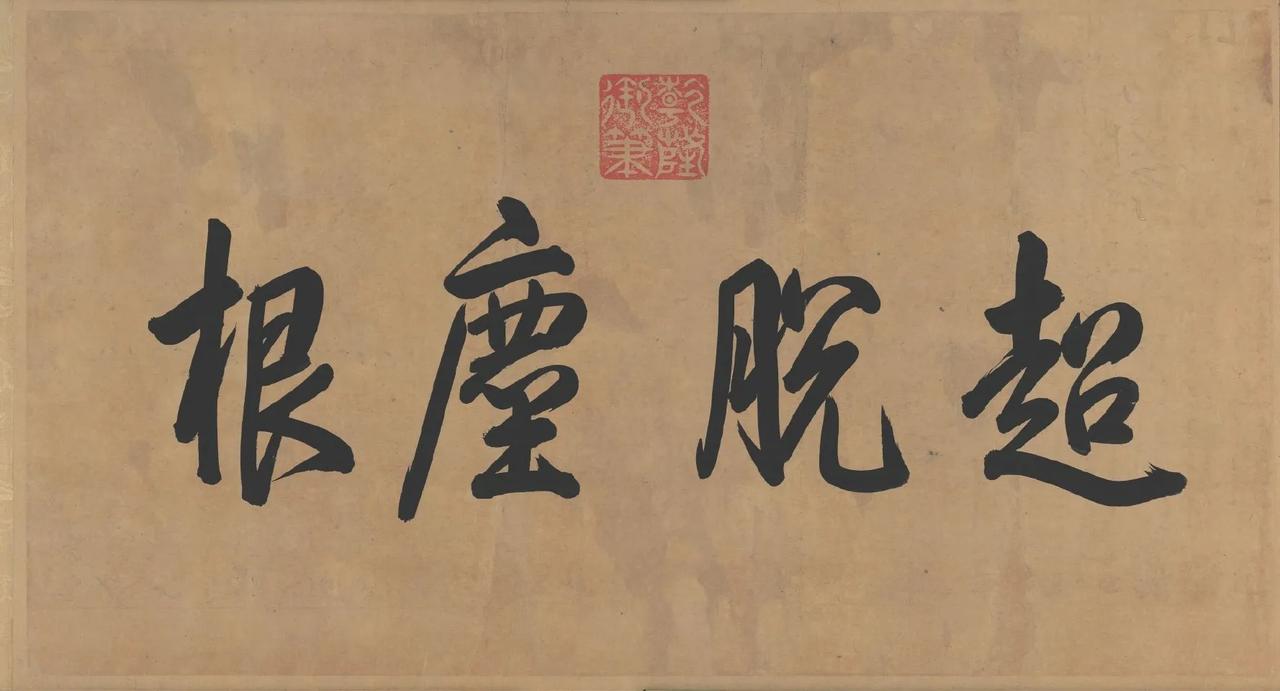 乾隆御筆
超脱塵根